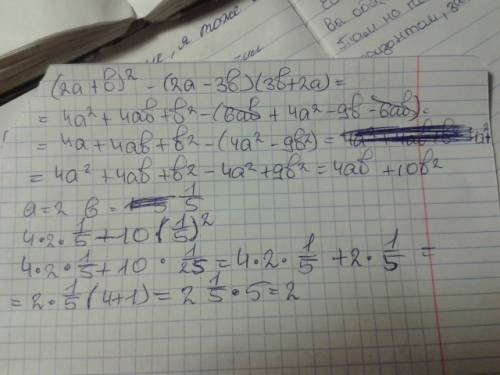 не, я тоже
ва
(2a+b)² - (2a-3b)(3b+2a)=
= 4a² + 4ab + b² - (6ab + 4a² - 9b - 6ab) =
= 4a + 4ab + b² - (4a² - 9b²) =
= 4a² + 4ab + b² - 4a² + 9b² = 4ab + 10b²
a=2 b = 1/5
4·2·1/5 + 10(1/5)²
4·2·1/5 + 10·1/25 = 4·2·1/5 + 2·1/5 =
= 2·1/5(4+1) = 2 1/5·5 = 2